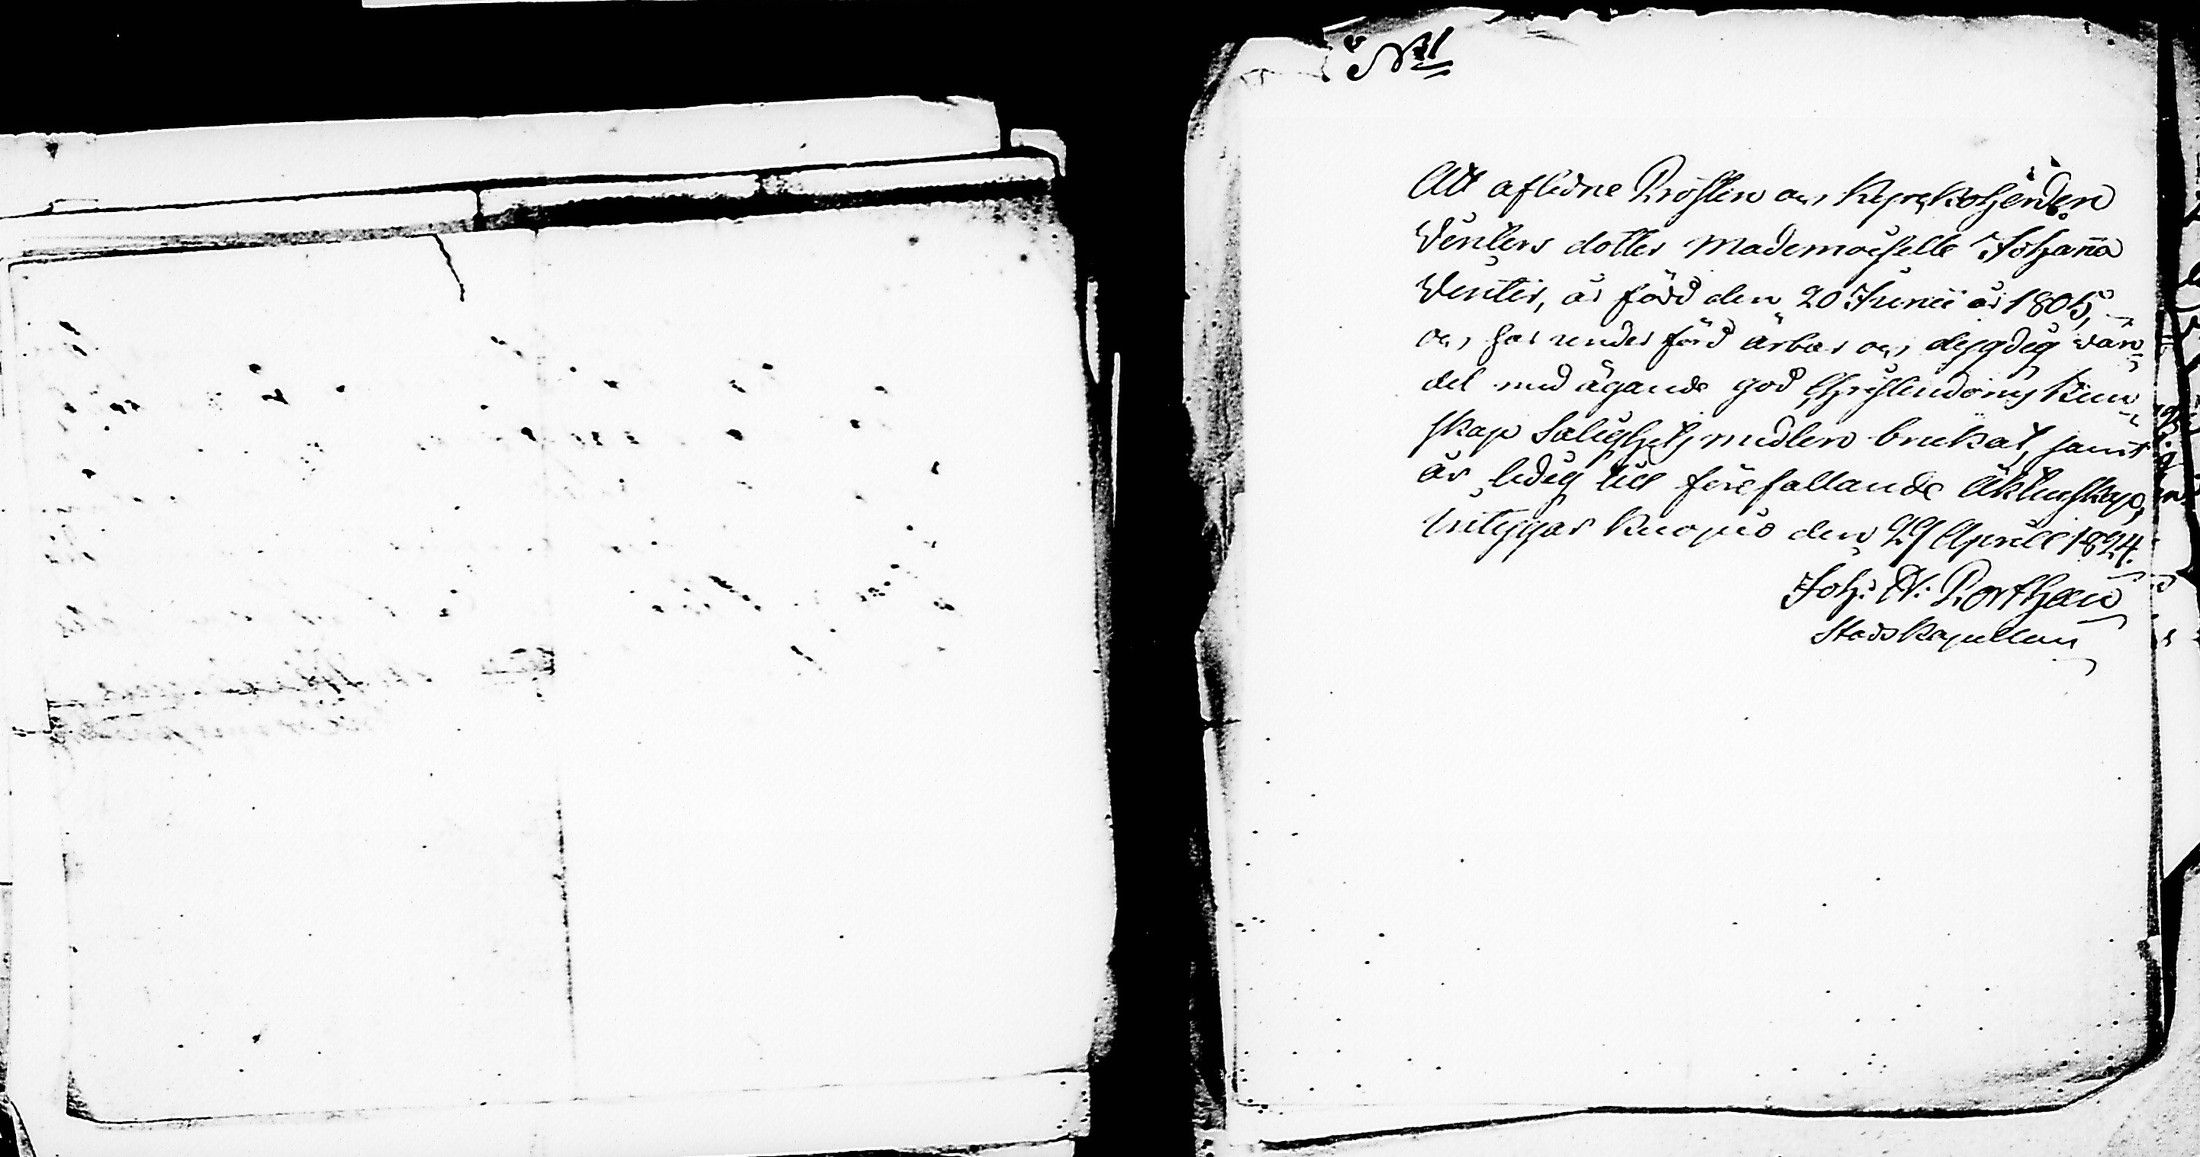 N:1
Att aflidne Prosten och Kyrckoherden
Wenters dotter Mademoiselle Johanna
Wenter, är född den 20 Junii år 1805,
och har under förd ärbar och dygdig van-
del med ägande god Christendoms Kun-
skap Salighets medlen brukat, samt
är ledig till förefallande Äktenskap,
intygar Kuopio den 29 Aprill 1824.
Joh: W: Porthan
Stads Kapellan